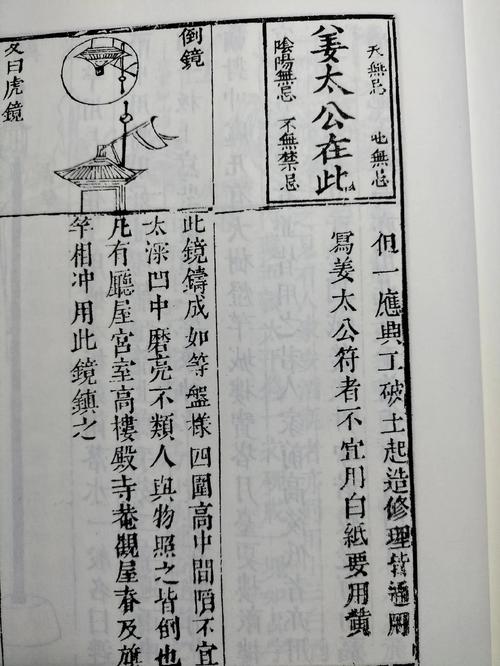 天無忌　地無忌
姜太公在此
陰陽無忌　不無禁忌
但一應興工破土起造修理皆通用
寫姜太公符者不宜用白紙要用黃
倒鏡
又曰虎鏡
此鏡鑄成如等盤樣四圍高中間陷不宜
太深凹中磨亮不類人與物照之皆倒也
凡有廳屋宮室高樓殿寺菴觀屋春及旗
竿相冲用此鏡鎮之